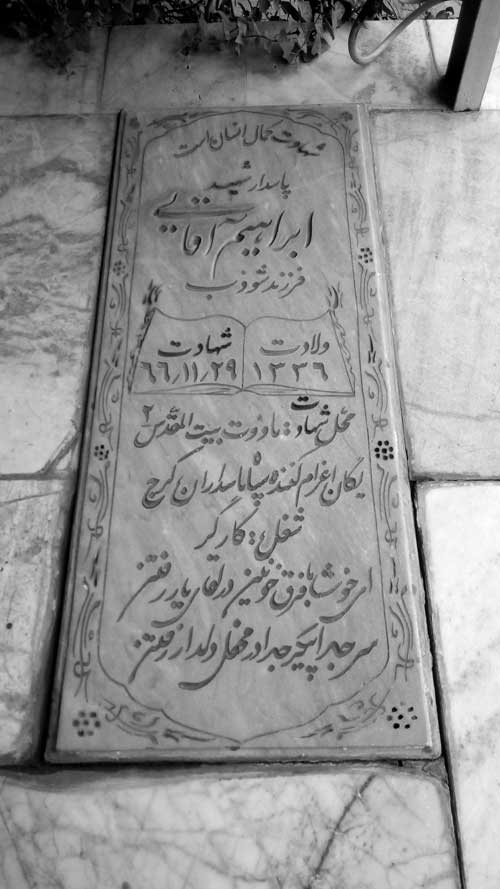 شهادت کمال انسان است
پاسدار شهید
ابراهیم آقایی
فرزند شوذب
ولادت
۱۳۳۶
شهادت
۶۶/۱۱/۲۹
محل شهادت: ماووت بیت المقدس ۲
یگان اعزام کننده سپاه پاسداران کرج
شغل: کارگر
ای خوشا با فرق خونین در لقای یار رفتن
سر جدا پیکر جدا در محفل دلدار رفتن